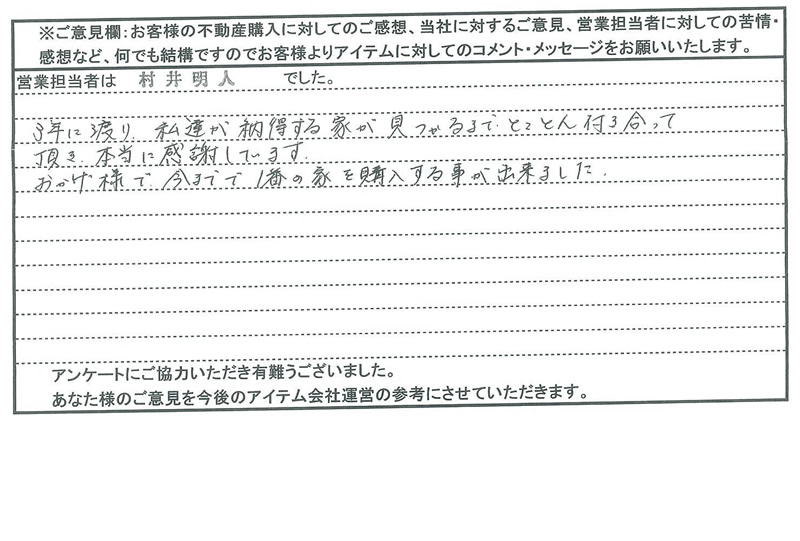 ※ご意見欄:お客様の不動産購入に対してのご感想、当社に対するご意見、営業担当者に対しての苦情・
感想など、何でも結構ですのでお客様よりアイテムに対してのコメント・メッセージをお願いいたします。
営業担当者は 村井明人 でした。
3年に渡り、私達が納得する家が見つかるまで、とことん付き合って
頂き、本当に感謝しています。
おかげ様で、今までで1番の家を購入する事が出来ました。
アンケートにご協力いただき有難うございました。
あなた様のご意見を今後のアイテム会社運営の参考にさせていただきます。